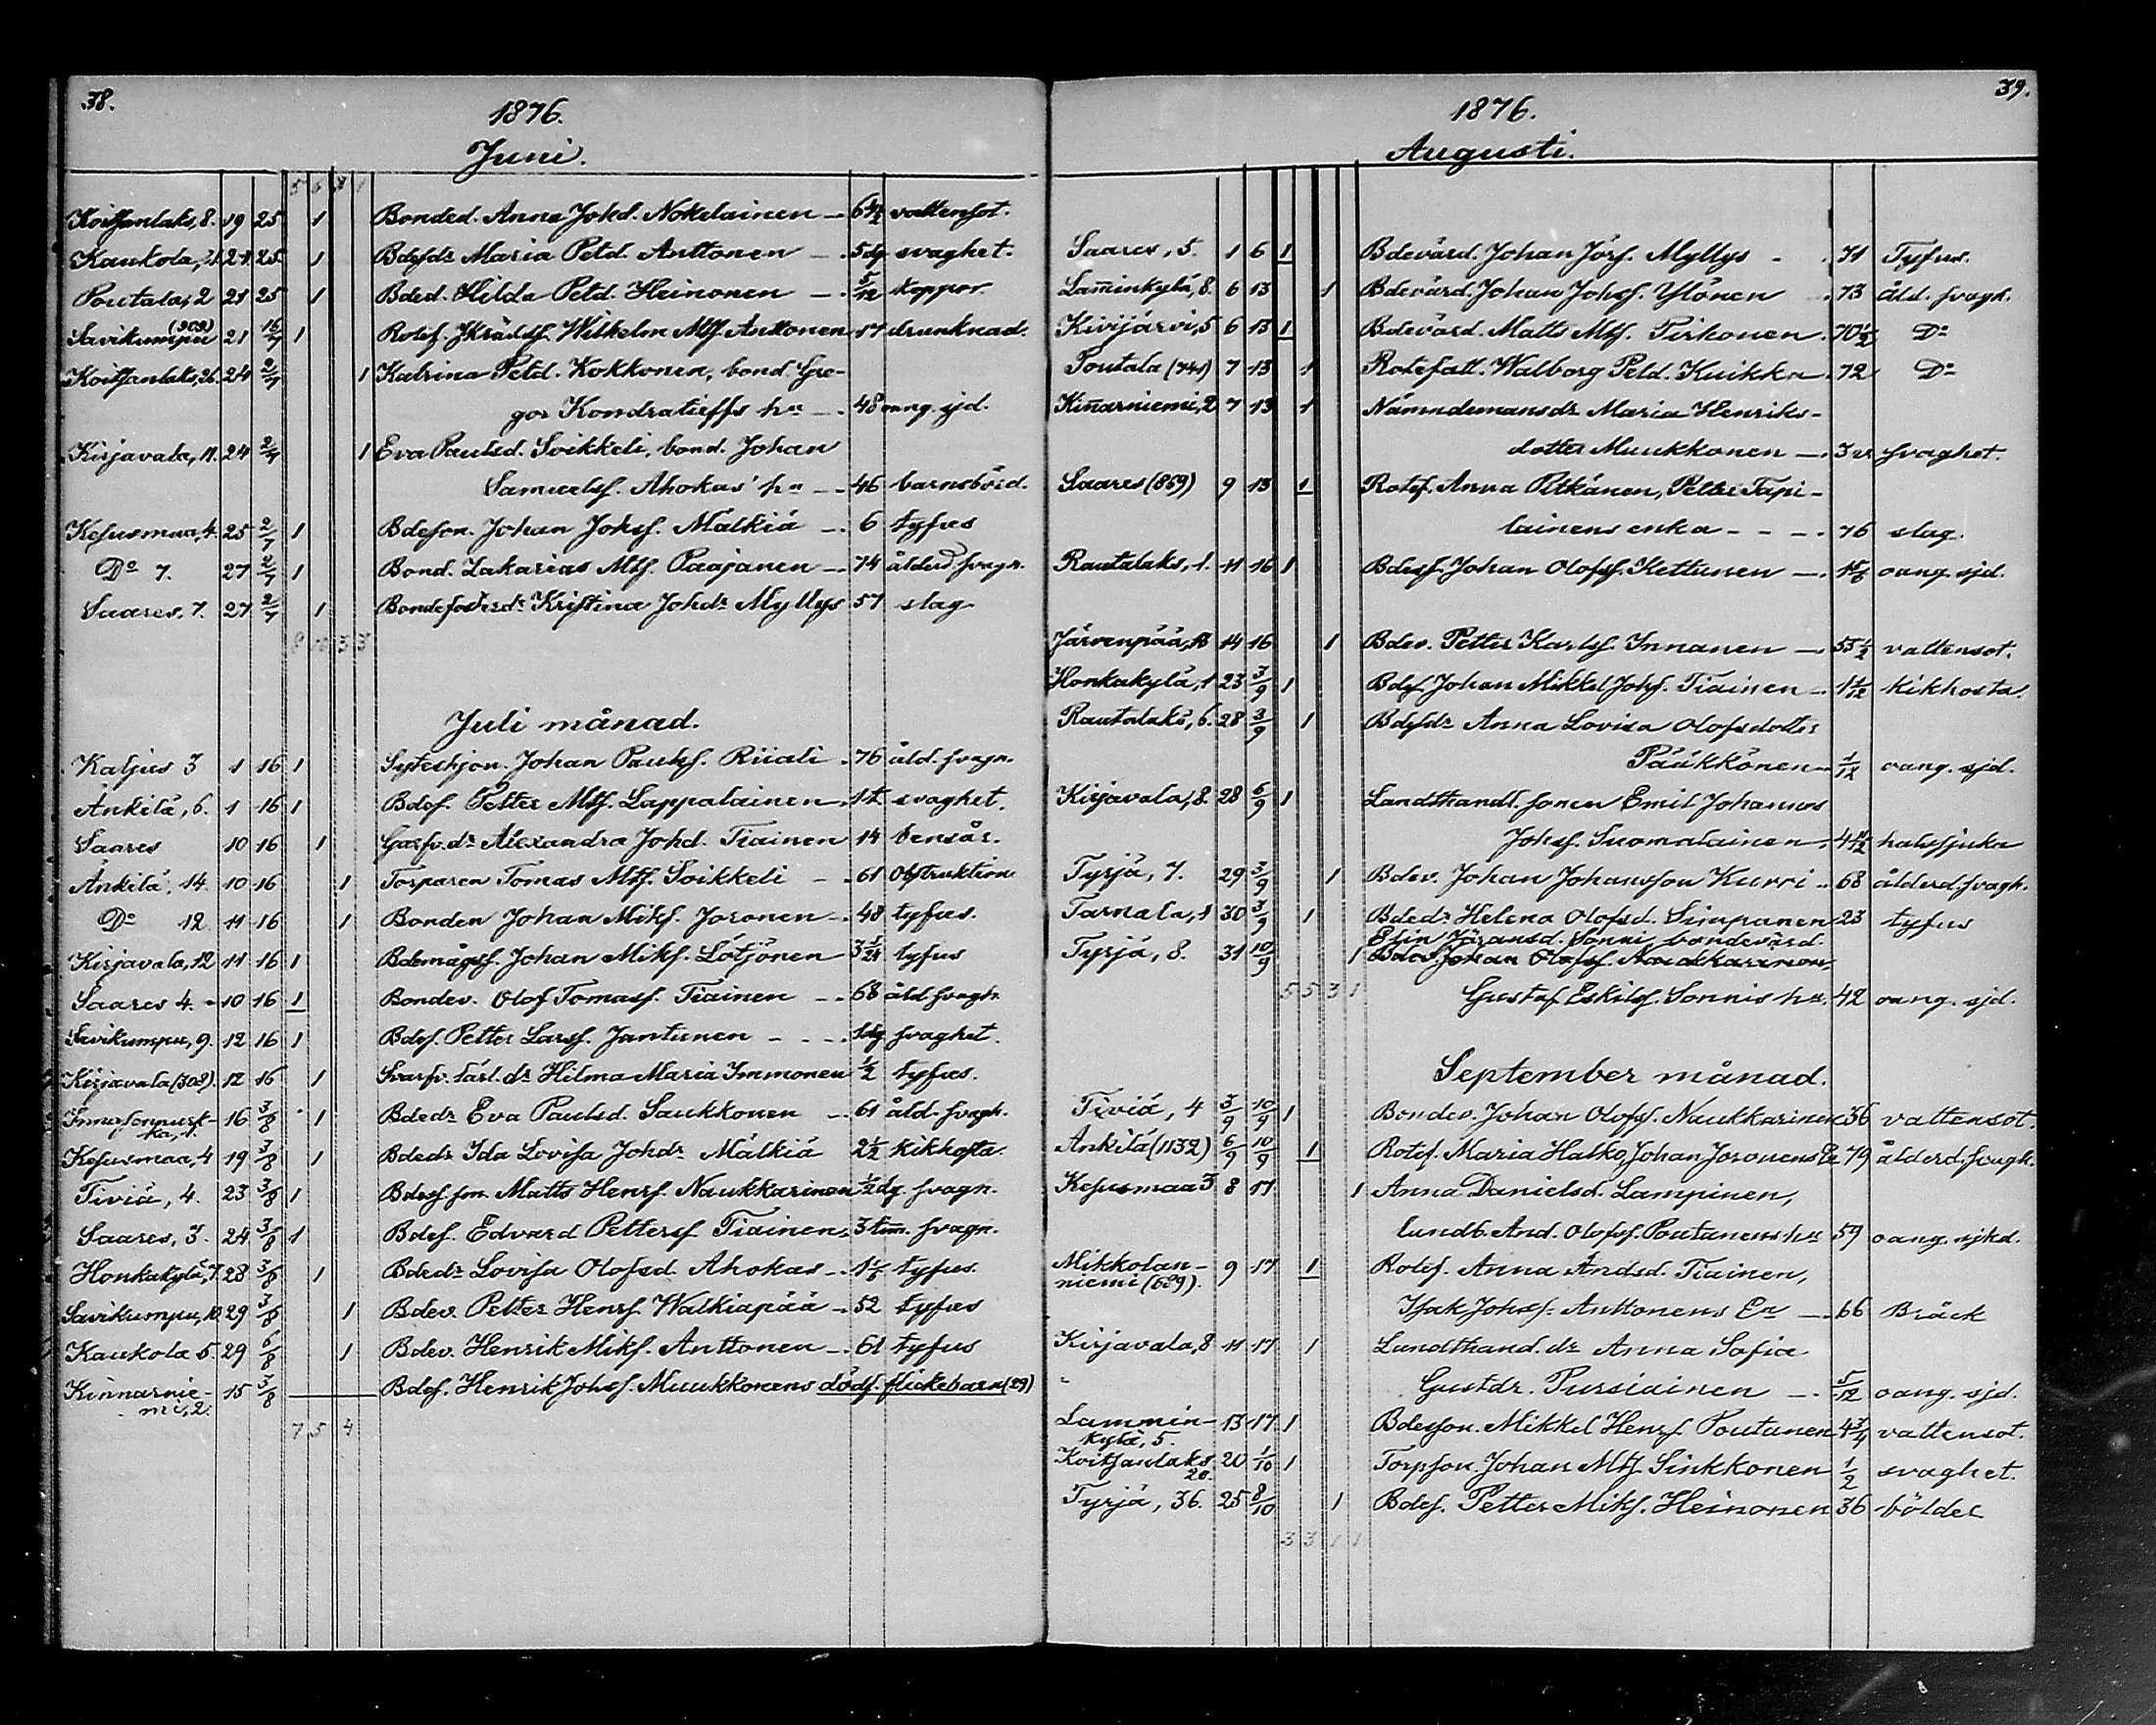 38.
1876.
Juni.
5 6 3 1
Koitsanlaks, 8. 19 25 1 Bonded. Anna Johd. Nokelainen — 6 1/2 vattensot.
Kaukola, 21. 25. 1 Bdesdr Maria Petd. Anttonen — 5 dg svaghet.
Poutala, 2 21 25 1 Bded. Hilda Petd. Heinonen — 5/12 koppor.
Savikumpu (909) 21 16/7 1 Rotef. Wilhelm Mtsf. Anttonen 17 drunknad.
Koitsanlaks, 26. 24 2/7 1 Katrina Petd. Kokkonen, bond. Gre-
gor Kondratieffs hu — 48 oang. sjd.
Kirjavala, 11. 24 2/7 1 Eva Paulsd. Soikkeli, bond. Johan
Samuelsf. Ahokas' hu — 46 barnsbörd.
Kesusmaa, 4. 25 2/7 1 Bdeson. Johan Johsf. Mälkiä — 6 tyfus
Do 7. 27 2/7 1 Bond. Zakarias Mtsf. Paajanen — 74 ålderd. svagh.
Saares, 7. 27 2/7 1 Bondefosterdr Kristina Johdr Myllys 57 slag
8 10 3 3
Juli månad.
Kaljus 3 1 16 1 Johan Paulsf. Riiali — 76 åld. svagh.
Änkilä, 6. 1 16 1 Bdef. Petter Mtsf. Lappalainen svaghet.
Saares 10 16 1 Garfv. dr Alexandra Johd. Tiainen 14 bensår.
Änkilä, 14. 10 16 1 Torparen Tomas Mtsf. Soikkeli — 61 Obstruktion
Do 12. 11 16 1 Bonden Johan Miksf. Joronen — 48 tyfus.
Kirjavala, 12 11 16 1 Bdemågsf. Johan Miksf. Lötjönen 3 1/24 tyfus
Saares 4. - 10 16 1 Bondev. Olof Tomasf. Tiainen — 68 åld. svagh.
Savikumpu, 9. 12 16 1 Bdef. Petter Larsf. Jantunen — 1 dg svaghet.
Kirjavala (308). 12 16 1 Svarfv. lärl. dr Hilma Maria Immonen 1/2 tyfus.
16 3/8 1 Bdedr Eva Paulsd. Saukkonen — 61 åld. svagh.
Kesusmaa, 4 19 3/8 1 Bdedr Ida Lovisa Johdr Mälkiä 2 1/2 kikhosta.
Tiviä, 4. 23 3/8 1 Bdesf. son Matts Henrsf. Naukkarinen 1/2 dg. svagh.
Saares, 3. 24 3/8 1 Bdef. Edvard Pettersf. Tiainen, 3 tim. svagh.
Honkakylä, 7. 28 3/8 1 Bdedr Lovisa Olofsd. Ahokas — tyfus
Savikumpu, 10. 29 3/8 1 Bdev. Petter Henrsf. Walkiapää — 52 tyfus
Kaukola 5. 29 6/8 1 Bdev. Henrik Miksf. Anttonen — 61 tyfus
Kinnarnie- 15 3/8 — Bdef. Henrik Johsf. Muukkonens dödf. flickebarn (29)
mi, 2.
7 5 4
39.
1876.
Augusti.
Saares, 5. 1 6 1 Bdevärd. Johan Jörsf. Myllys - 71 Tyfus.
Lam̄inkylä, 8. 6 13 1 Bdevärd. Johan Johsf. Ylönen 73 åld. svagh.
Kivijärvi, 5 6 13 1 Bdevärd. Matts Mtsf. Pirhonen 70 1/2 Do
Poutala (741) 7 13 1 Rotefatt. Walborg Petd. Kuikka 72 Do
Kin̄arniemi, 2 7 13 1 Nämndemansdr Maria Henriks-
dotter Muukkonen — svaghet.
Saares (869) 9 13 1 Rotef. Anna Pitkänen, Petter Tapi-
lainens enka - - - - 76 slag.
Rautalaks, 1. 11 16 1 Bdesf. Johan Olofsf. Kettunen — oang. sjd.
Järvenpää, 13 14 16 1 Bdev. Petter Karlsf. Innanen — 55 1/2 vattensot.
Honkakylä, 1 23 3/9 1 Bdef. Johan Mikkel Johsf. Tiainen — kikhosta.
Rautalaks, 6. 28 3/9 1 Bdesdr Anna Lovisa Olofsdotter
Pääkkönen — 1/12 oang. sjd.
Kirjavala, 8. 28 6/9 1 Landthandl. sonen Emil Johannes
Johsf. Suomalainen, halssjuka
Tyrjä, 7. 29 3/9 1 Bdev. Johan Johansson Kurri — 68 ålderd. svagh.
Tarnala, 1 30 3/9 1 Bdedr Helena Olofsd. Simpanen 23 tyfus
Elin Jöransd. Sonni, bondevärd.
Tyrjä, 8. 31 10/9 1 Bdev. Johan Olofsf. Naukkarinen,
5 5 3 1 Gustaf Eskilsf. Sonnis hu. 42 oang. sjd.
September månad.
Tiviä, 4 3/9 10/9 1 Bondev. Johan Olofsf. Naukkarinen 36 vattensot.
Änkilä (1132) 6/9 10/9 1 Rotef. Maria Halko, Johan Joronens Ea 79 ålderd. svagh.
Kesusmaa 3 8 17 1 Anna Danielsd. Lampinen,
lundb. And. Olofsf. Poutanens hu 59 oang. sjkd.
Mikkolan- 9 17 1 Rotef. Anna Andsd. Tiainen,
niemi (689).
Isak Johsf. Anttonens Ea — 66 Bråck
Kirjavala, 8 11 17 1 Landthand. dr Anna Sofia
Gustdr. Pursiainen — 5/12 oang. sjd.
Lammin- 13 17 1 Bdeson. Mikkel Henrsf. Poutanen 4 3/4 vattensot.
kylä, 5.
Koitsanlaks 20 1/10 1 Torpson. Johan Mtsf. Sinkkonen 1/2 svaghet.
20.
Tyrjä, 36. 25 8/10 1 Bdef. Petter Miksf. Heinonen 36 bölder
3 3 1 1